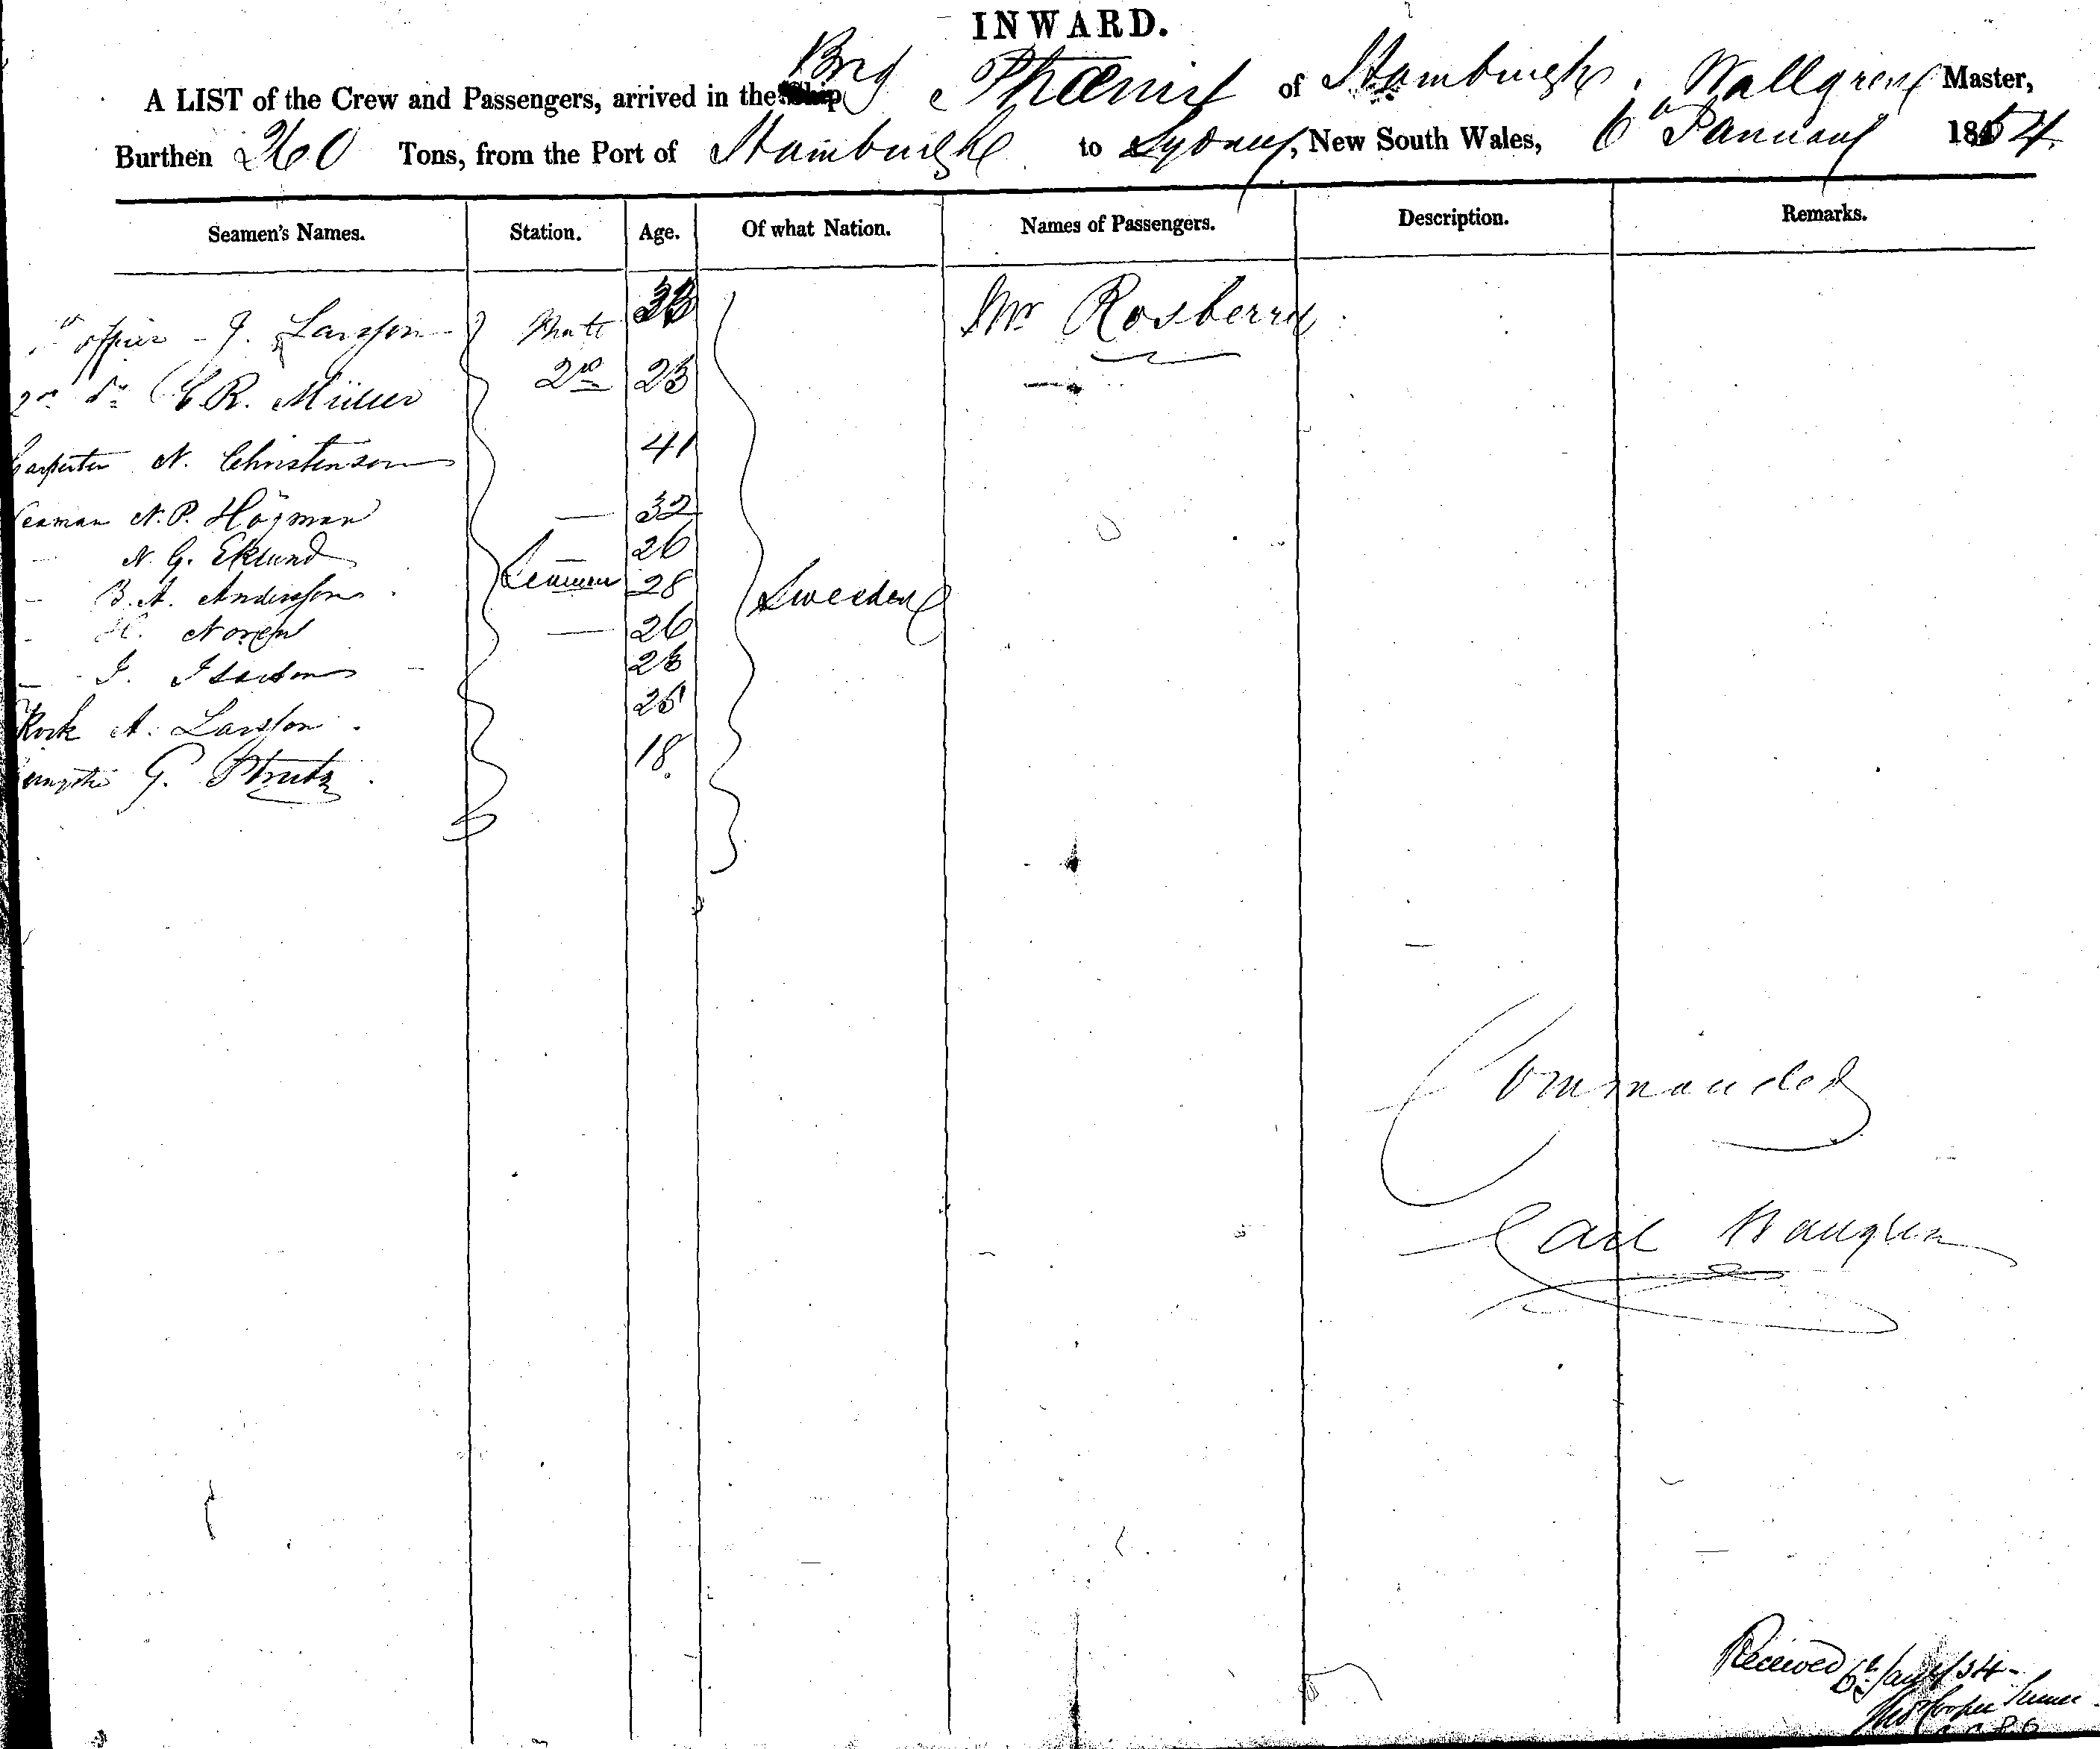 INWARD.
A LIST of the Crew and Passengers, arrived in the Ship Brig Phœnix of Hamburgh, Wallgrene Master,
Burthen 260 Tons, from the Port of Hamburgh to Sydney, New South Wales, 6th January 1854
Seamen's Names. Station. Age. Of what Nation. Names of Passengers. Description. Remarks.
officer - J. Larsson Mate 33 Mr Rosberry
2nd Do C. R. Müller 2d 23
Carpenter N. Christenson 41
Seaman N. P. Högman — 32
— N. G. Eklund 26
— B. A. Andersson Seamen 28 Sweeden
— H. Noren — 26
— J. Isacson
Kock A. Larsson
G. Strutz 18.
Commander
Carl
Received 6th Jany/54